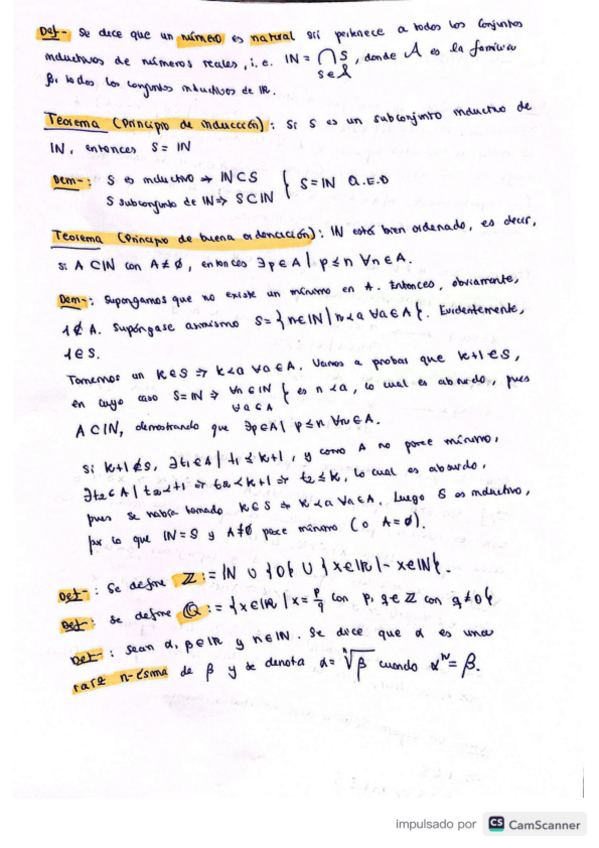 Def-: Se dice que un número es natural sii pertenece a todos los conjuntos
inductivos de números reales, i.e. ℕ = ⋂ S, donde 𝒜 es la familia
S∈𝒜
de todos los conjuntos inductivos de ℝ.
Teorema (Principio de inducción): Si S es un subconjunto inductivo de
ℕ, entonces S = ℕ
Dem-: S es inductivo ⇒ ℕ ⊂ S } S = ℕ Q.E.D
S subconjunto de ℕ ⇒ S ⊂ ℕ
Teorema (Principio de buena ordenación): ℕ está bien ordenado, es decir,
si A ⊂ ℕ con A ≠ ∅, entonces ∃p ∈ A | p ≤ n ∀n ∈ A.
Dem-: Supongamos que no existe un mínimo en A. Entonces, obviamente,
1 ∉ A. Supóngase asimismo S = {n ∈ ℕ | n < a ∀a ∈ A}. Evidentemente,
1 ∈ S.
Tomemos un k ∈ S ⇒ k < a ∀a ∈ A. Vamos a probar que k+1 ∈ S,
en cuyo caso S = ℕ ⇒ ∀n ∈ ℕ } es n < a, lo cual es absurdo, pues
∀a ∈ A
A ⊂ ℕ, demostrando que ∃p ∈ A | p ≤ n ∀n ∈ A.
Si k+1 ∉ S, ∃t₁ ∈ A | t₁ ≤ k+1, y como A no posee mínimo,
∃t₂ ∈ A | t₂ < t₁ ⇒ t₂ < k+1 ⇒ t₂ ≤ k, lo cual es absurdo,
pues se había tomado k ∈ S ⇒ k < a ∀a ∈ A. Luego S es inductivo,
por lo que ℕ = S y A ≠ ∅ posee mínimo (o A = ∅).
Def-: Se define ℤ := ℕ ∪ {0} ∪ {x ∈ ℝ | -x ∈ ℕ}.
Def-: Se define ℚ := {x ∈ ℝ | x = p/q con p, q ∈ ℤ con q ≠ 0}
Def-: Sean α, β ∈ ℝ y n ∈ ℕ. Se dice que α es una
raíz n-ésima de β y se denota α = ⁿ√β cuando αⁿ = β.
impulsado por CS CamScanner